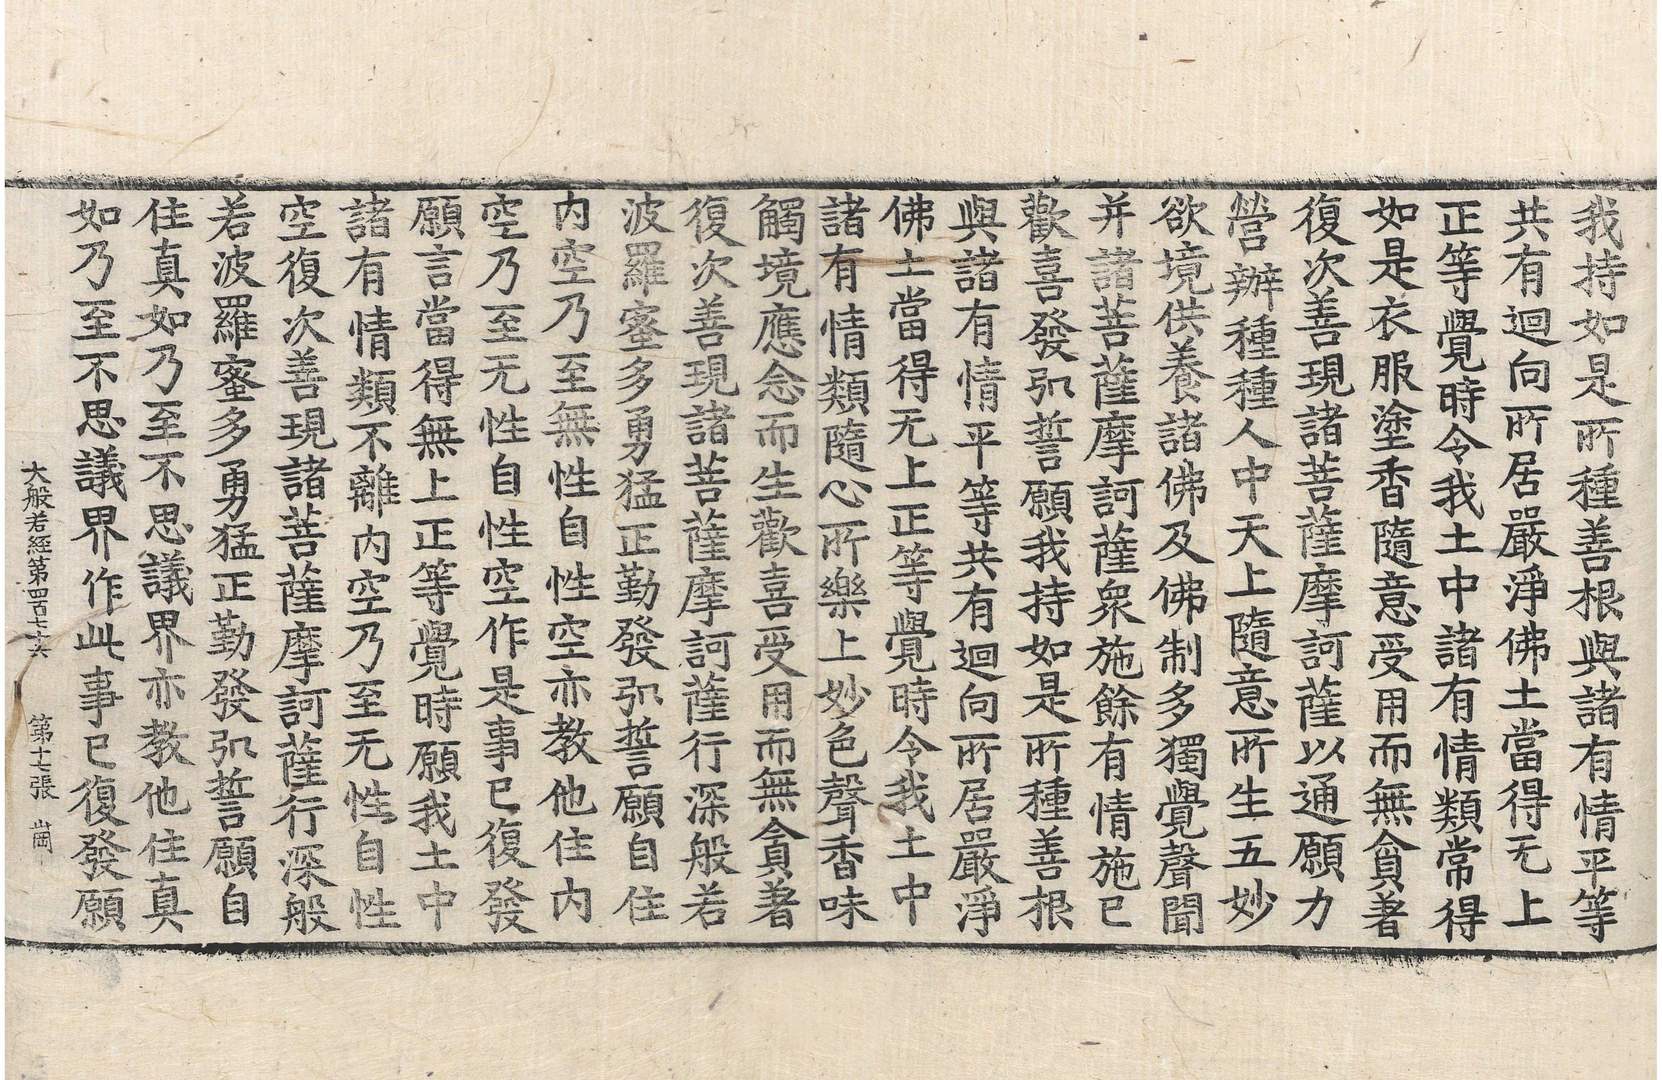 我持如是所種善根與諸有情平等
共有迴向所居嚴淨佛土當得无上
正等覺時令我土中諸有情類常得
如是衣服塗香隨意受用而無貪著
復次善現諸菩薩摩訶薩以通願力
營辦種種人中天上隨意所生五妙
欲境供養諸佛及佛制多獨覺聲聞
并諸菩薩摩訶薩衆施餘有情施已
歡喜發弘誓願我持如是所種善根
與諸有情平等共有迴向所居嚴淨
佛土當得无上正等覺時令我土中
諸有情類隨心所樂上妙色聲香味
觸境應念而生歡喜受用而無貪著
復次善現諸菩薩摩訶薩行深般若
波羅蜜多勇猛正勤發弘誓願自住
内空乃至無性自性空亦教他住内
空乃至无性自性空作是事已復發
願言當得無上正等覺時願我土中
諸有情類不離内空乃至无性自性
空復次善現諸菩薩摩訶薩行深般
若波羅蜜多勇猛正勤發弘誓願自
住真如乃至不思議界亦教他住真
如乃至不思議界作此事已復發願
大般若經第四百七十六 第十七張 崗